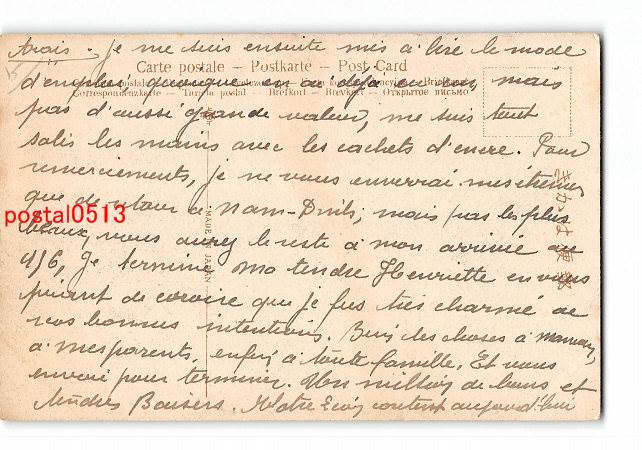 avais. Je me suis ensuite mis à lire le mode
Carte postale – Postkarte – Post Card
d'emploi quoique en ai déjà eu en mais
Correspondenzkarte – Tarjeta postal – Brefkort – Brevkort – Открытое письмо
pas d'aussi grande valeur, me suis tout
salis les mains avec les cachets d'encre. Pour
remerciements, je ne vous enverrai mes
que de retour à Nam-Dinh; mais pas les plus
postal0513
beaux, vous aurez le reste à mon arrivée au
MADE IN JAPAN
4/6, Je termine ma tendre Henriette en vous
priant de croire que je fus très charmé de
vos bonnes intentions. Bien des choses à maman,
à mes parents, enfin à toute famille. Et vous
envoie pour terminer. Mon million de bons et
tendres Baisers. Notre content aujourd'hui
きかは便郵